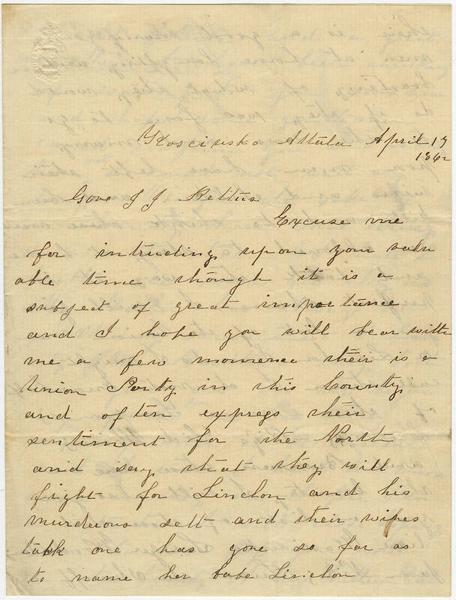 Kosciusko Attala April 17
1862
Gove J J Pettus
Excuse me
for intruding upon you valu
able time though it is a
subject of great importance
and I hope you will bear with
me a few momence their is a
Union Party in this County
and often express their
sentiment for the North
and say that they will
fight for Linclon and his
murdeous sett and their wifes
talk one has gone so far as
to name her babe Linclon